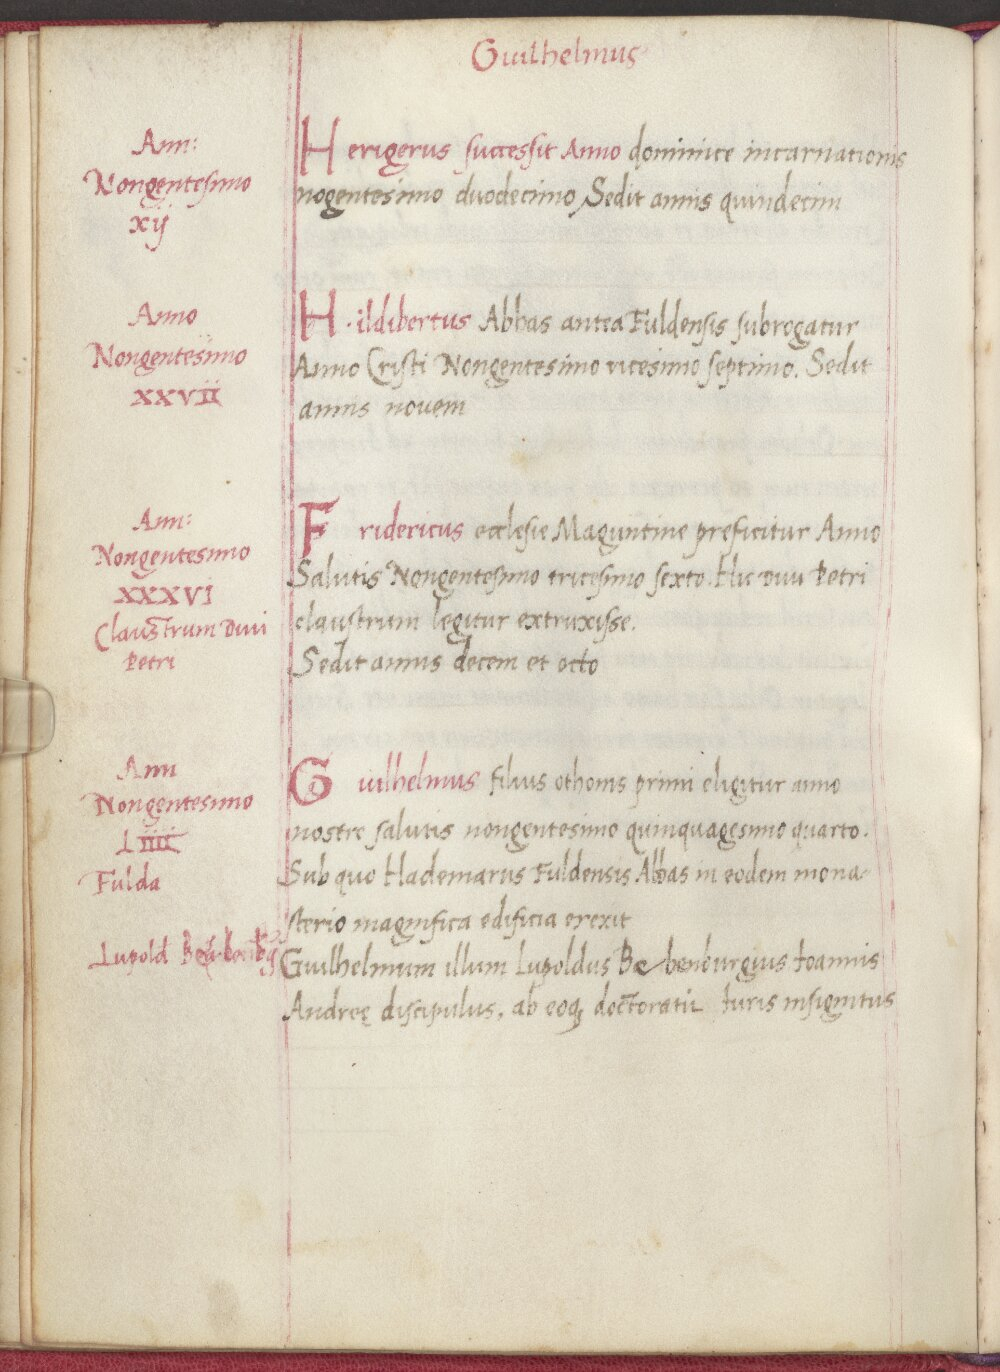 Guilhelmus
Ann:
Nongentesimo
xij
Herigerus successit Anno dominice incarnationis
nogentesimo duodecimo, Sedit annis quindecim
Anno
Nongentesimo
XXVII
Hildibertus Abbas antea Fuldensis subrogatur
Anno Cristi Nongentesimo vicesimo septimo. Sedit
annis novem
Ann:
Nongentesimo
XXXVI
Claustrum Divi
Petri
Fridericus ecclesie Maguntine preficitur Anno
Salutis Nongentesimo tricesimo sexto. Hic Divi Petri
claustrum legitur extruxisse.
Sedit annis decem et octo
Ann
Nongentesimo
LIIII
Fulda
Guilhelmus filius othonis primi eligitur anno
nostre salutis nongentesimo quinquagesimo quarto.
Sub quo Hademarus Fuldensis Abbas in eodem mona-
sterio magnifica edificia erexit
Lupold
Guilhelmum illum Lupoldus Be benburgius Ioannis
Andreę discipulus, ab eoq, doctoratu Iuris insignitus